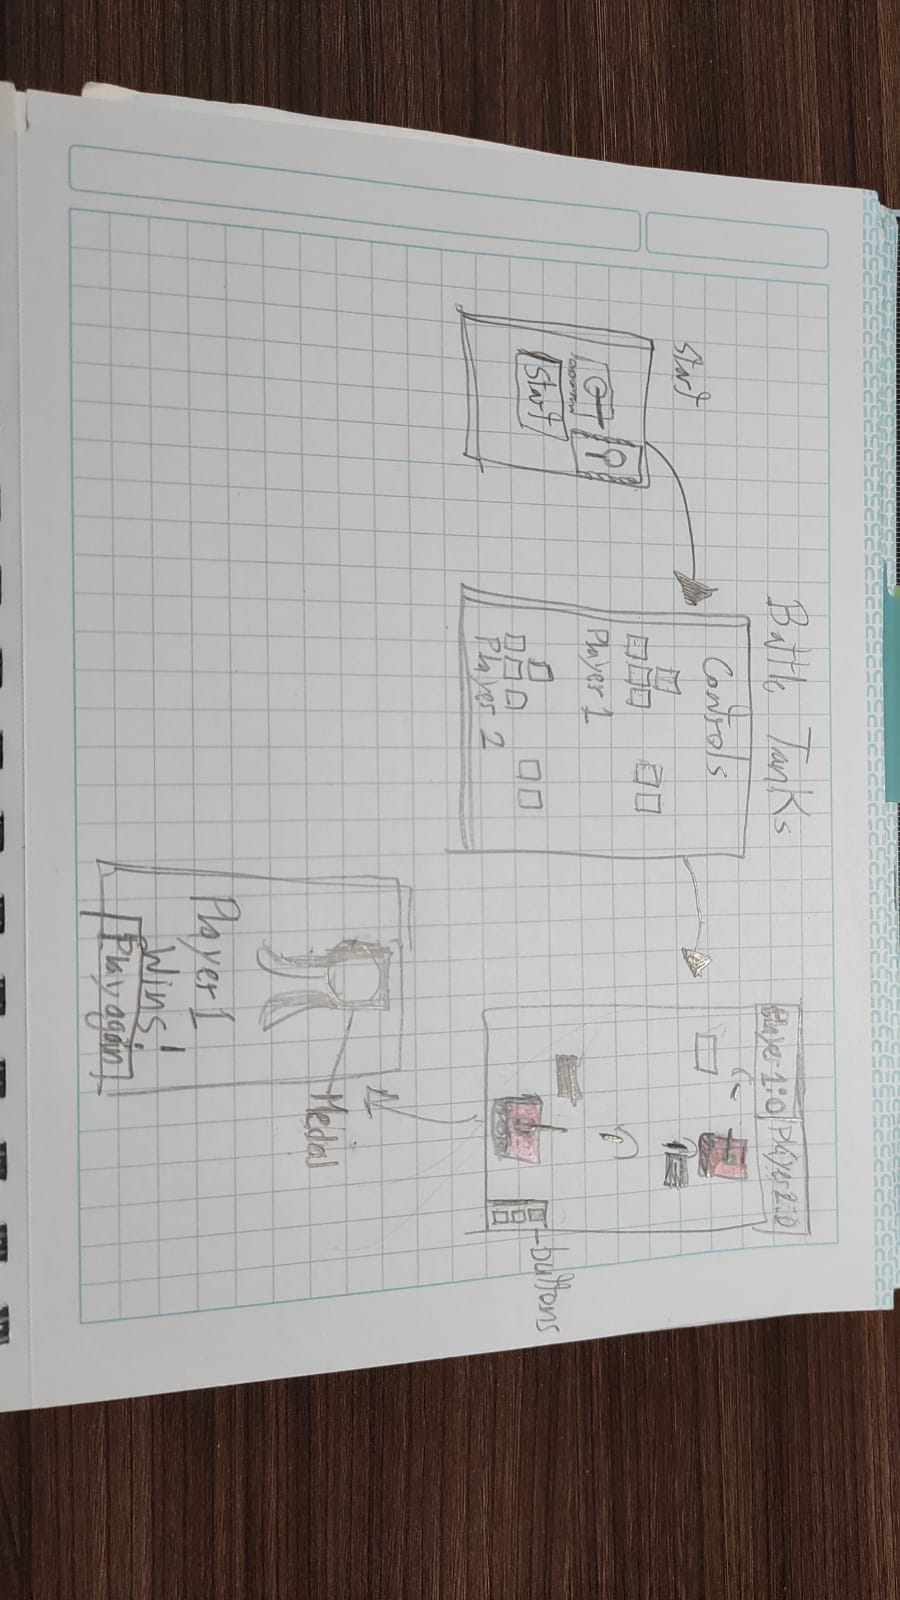 Battle Tanks
Start
Start
Controls
Player 1
Player 2
Player 1:0 Player 2:0
buttons
Medal
Player 1
Wins!
Play again